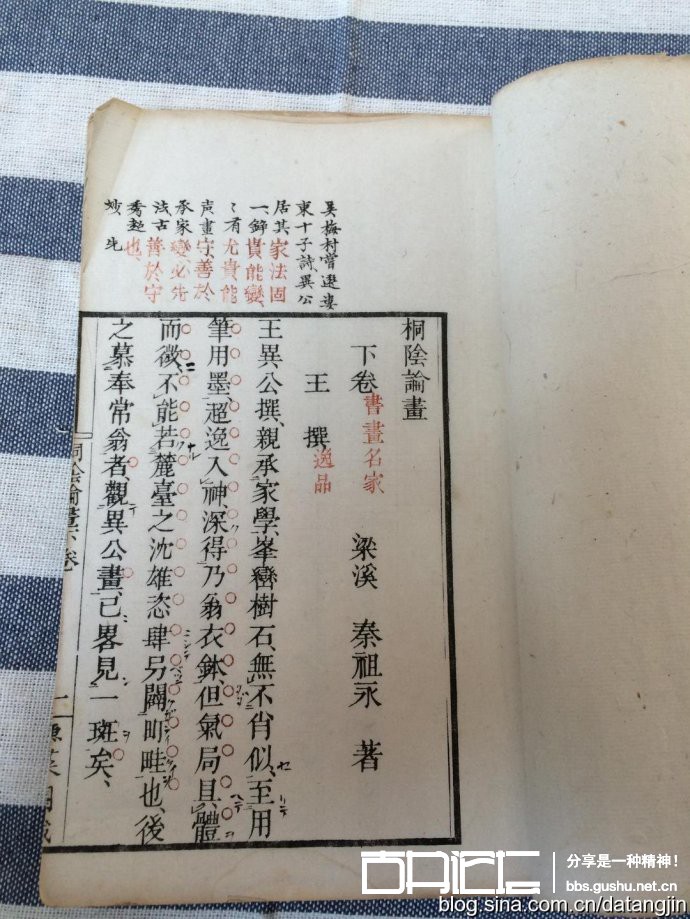 桐陰論畫
下卷 書畫名家 梁溪 秦祖永 著
王撰 逸品
王異公撰親承家學峯巒樹石無不肖似至用
筆用墨超逸入神深得乃翁衣鉢但氣局具體
而微不能若麓臺之沈雄恣肆另闢町畦也後
之慕奉常翁者觀異公畫已畧見一斑矣
吳梅村嘗選婁
東十子詩異公
居其一
家法固
貴能變
尤貴能
守善於
變必先
善於守
也
桐陰論畫下卷
二
分享是一种精神!
bbs.gushu.net.cn
blog.sina.com.cn/datangjin